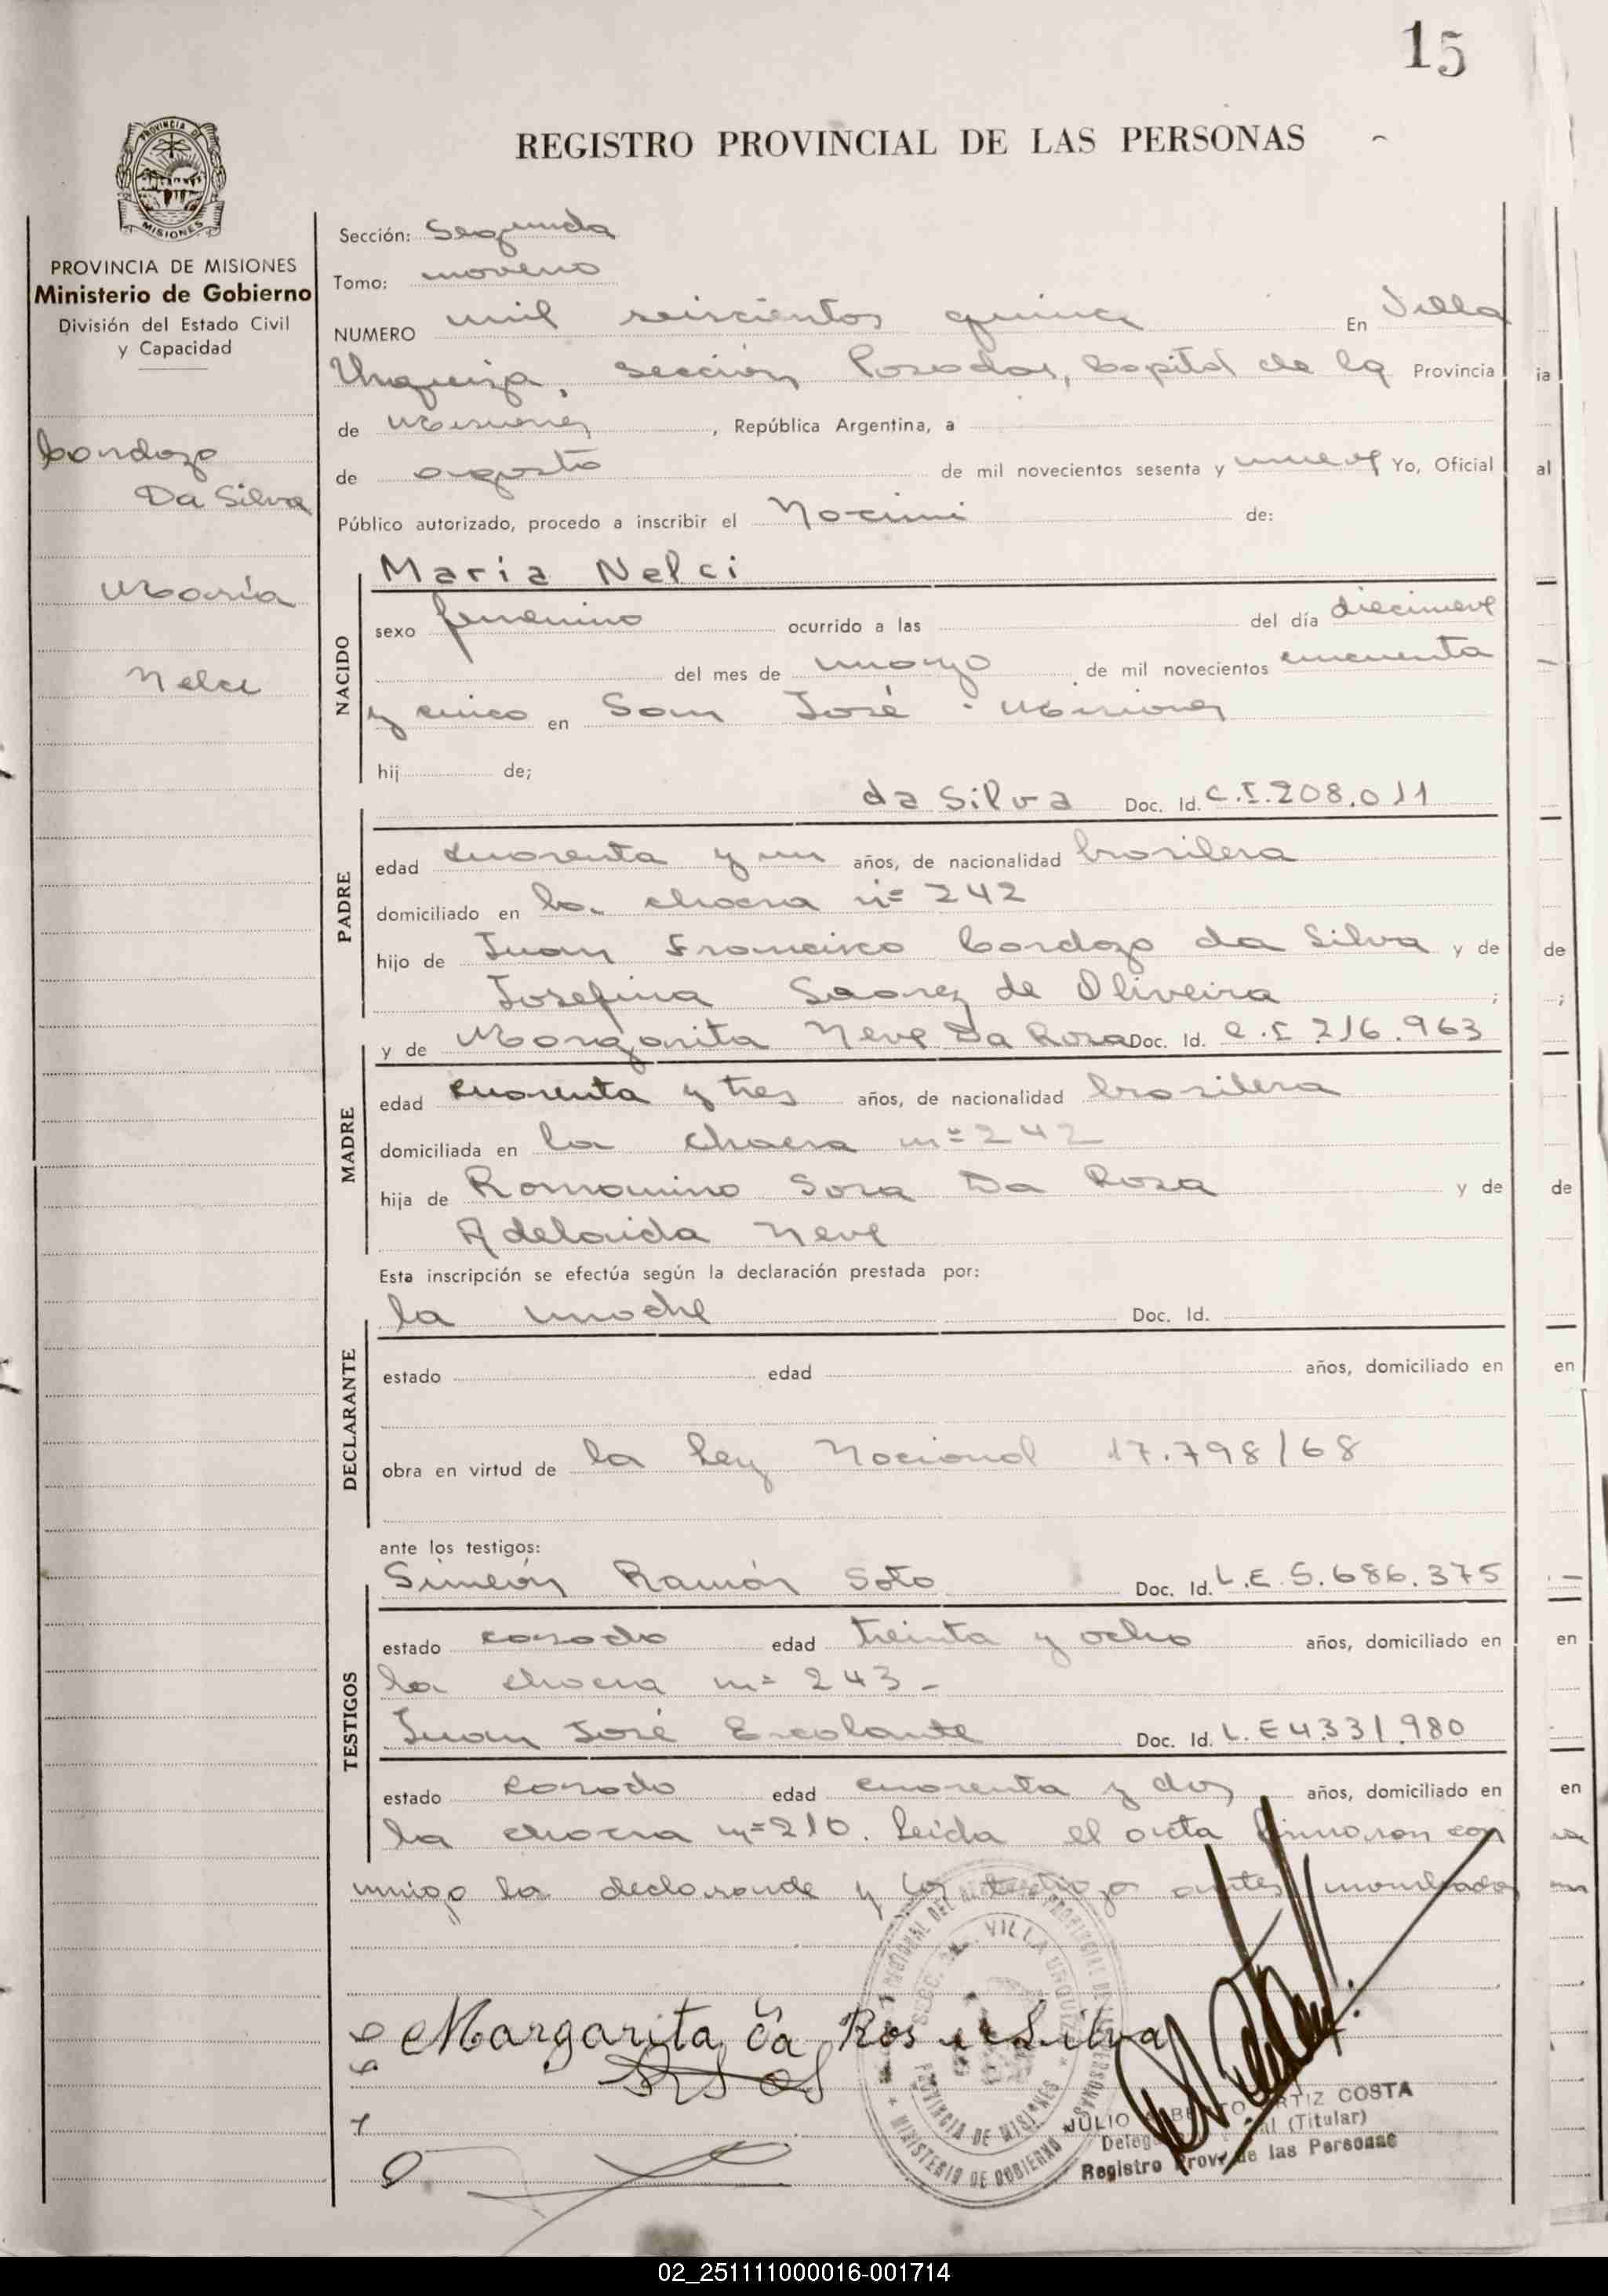 15
REGISTRO PROVINCIAL DE LAS PERSONAS
PROVINCIA DE
MISIONES
PROVINCIA DE MISIONES
Ministerio de Gobierno
División del Estado Civil
y Capacidad
Cardozo
Da Silva
María
Nelci
Sección: Segunda
Tomo: noveno
NUMERO mil seiscientos quince En Villa
Urquiza, sección Posadas, Capital de la Provincia
de Misiones, República Argentina, a
de agosto de mil novecientos sesenta y nueve Yo, Oficial
Público autorizado, procedo a inscribir el Nacimi de:
NACIDO
Maria Nelci
sexo femenino ocurrido a las del día diecinueve
del mes de marzo de mil novecientos cincuenta
y cinco en San José - Misiones
hij de;
PADRE
da Silva Doc. Id. C.I. 208.011
edad cuarenta y un años, de nacionalidad brasilera
domiciliado en la chacra nº 242
hijo de Juan Francisco Cardozo da Silva y de
Josefina de Oliveira ;
y de Margarita Neve Da Rosa Doc. Id. C.I 216.963
MADRE
edad cuarenta y tres años, de nacionalidad brasilera
domiciliada en la chacra nº 242
hija de Da Rosa y de
Adelaida Neve
Esta inscripción se efectúa según la declaración prestada por:
DECLARANTE
la madre Doc. Id.
estado edad años, domiciliado en
obra en virtud de la Ley Nacional 17.798/68
ante los testigos:
TESTIGOS
Simeón Ramón Soto Doc. Id. L.E. 5.686.375
estado casado edad treinta y ocho años, domiciliado en
la chacra nº 243 -
Juan José Escalante Doc. Id. L.E 4.331.980
estado casado edad cuarenta y dos años, domiciliado en
la chacra nº 210. Leída el acta firmaron con
migo la declarande y los testigos antes nombrados
Margarita da Rosa Silva
VILLA URQUIZA
PROVINCIA DE MISIONES
MINISTERIO DE GOBIERNO
JULIO ALBERTO ORTIZ COSTA
(Titular)
Registro Prov. de las Personas
ia
al
de
;
de
en
en
en
02_251111000016-001714